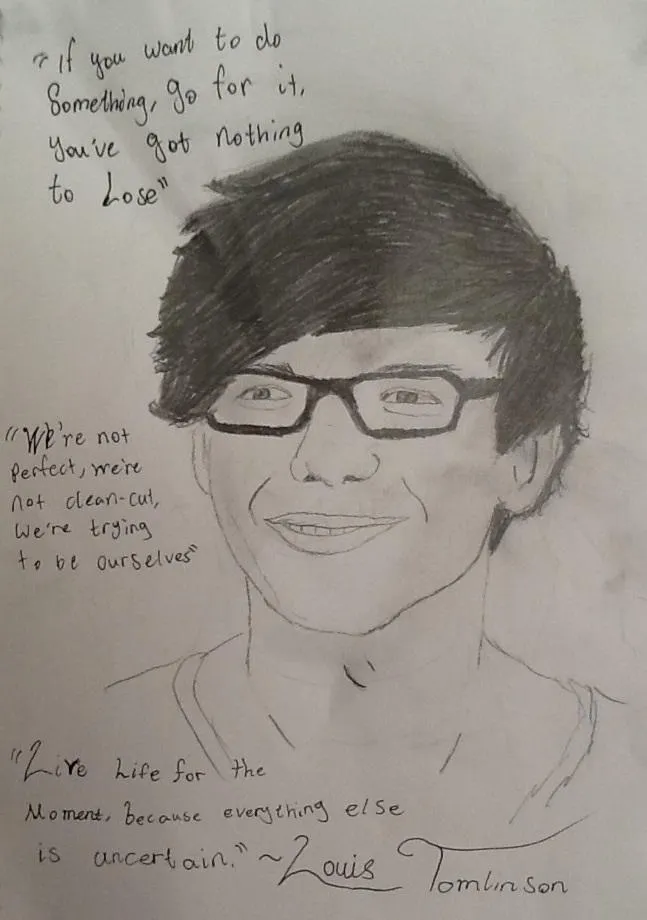 "If you want to do
Something, go for it,
you've got nothing
to Lose"
"We're not
perfect, we're
not clean-cut,
we're trying
to be ourselves"
"Live Life for the
Moment, because everything else
is uncertain." ~Louis Tomlinson